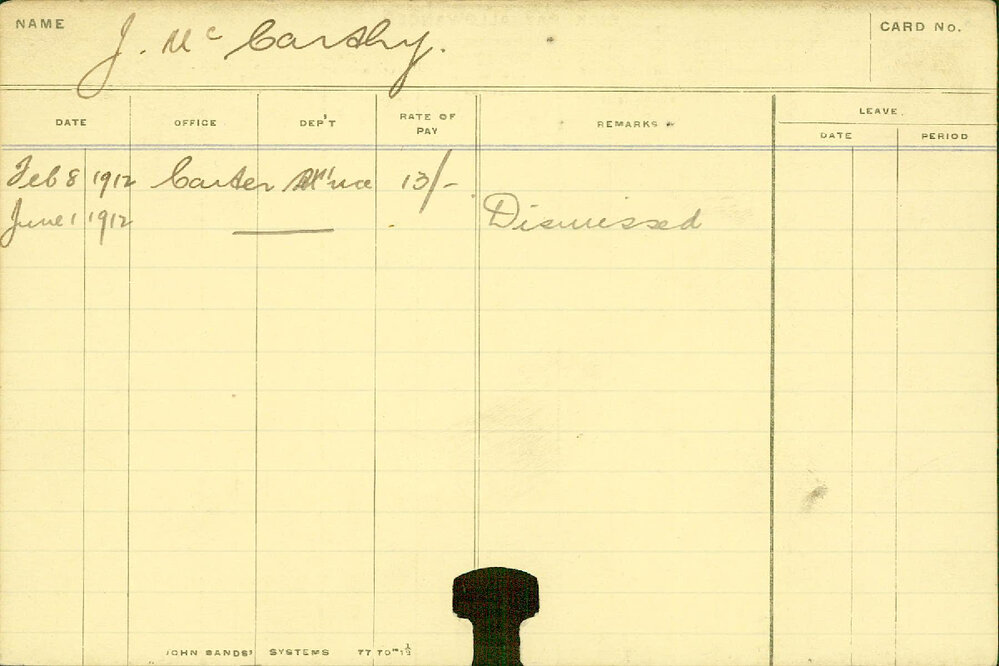 NAME J. Mc Carthy. CARD No.
DATE OFFICE DEP'T RATE OF PAY REMARKS LEAVE
DATE PERIOD
Feb 8 1912 Carter 13/-
June 1 1912 — Dismissed
JOHN SANDS' SYSTEMS